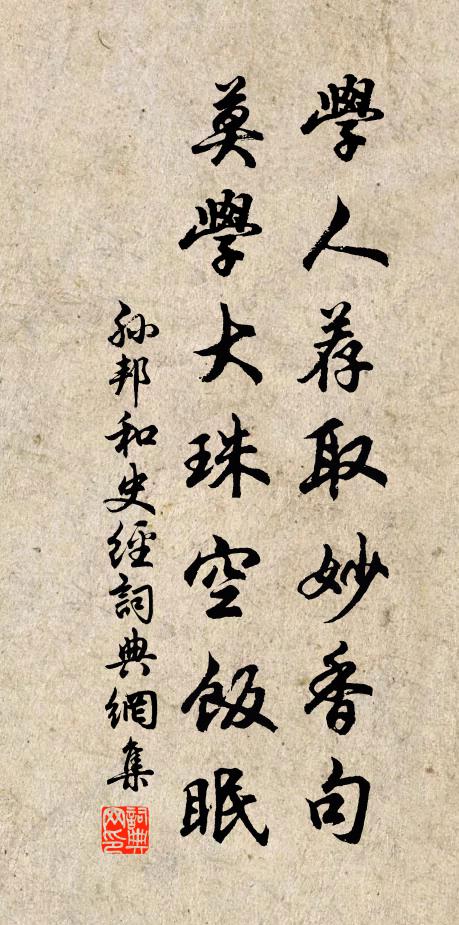 學人荐取妙香句
莫學大珠空飯眠
孙邦和史經詞典網集
詞典網印